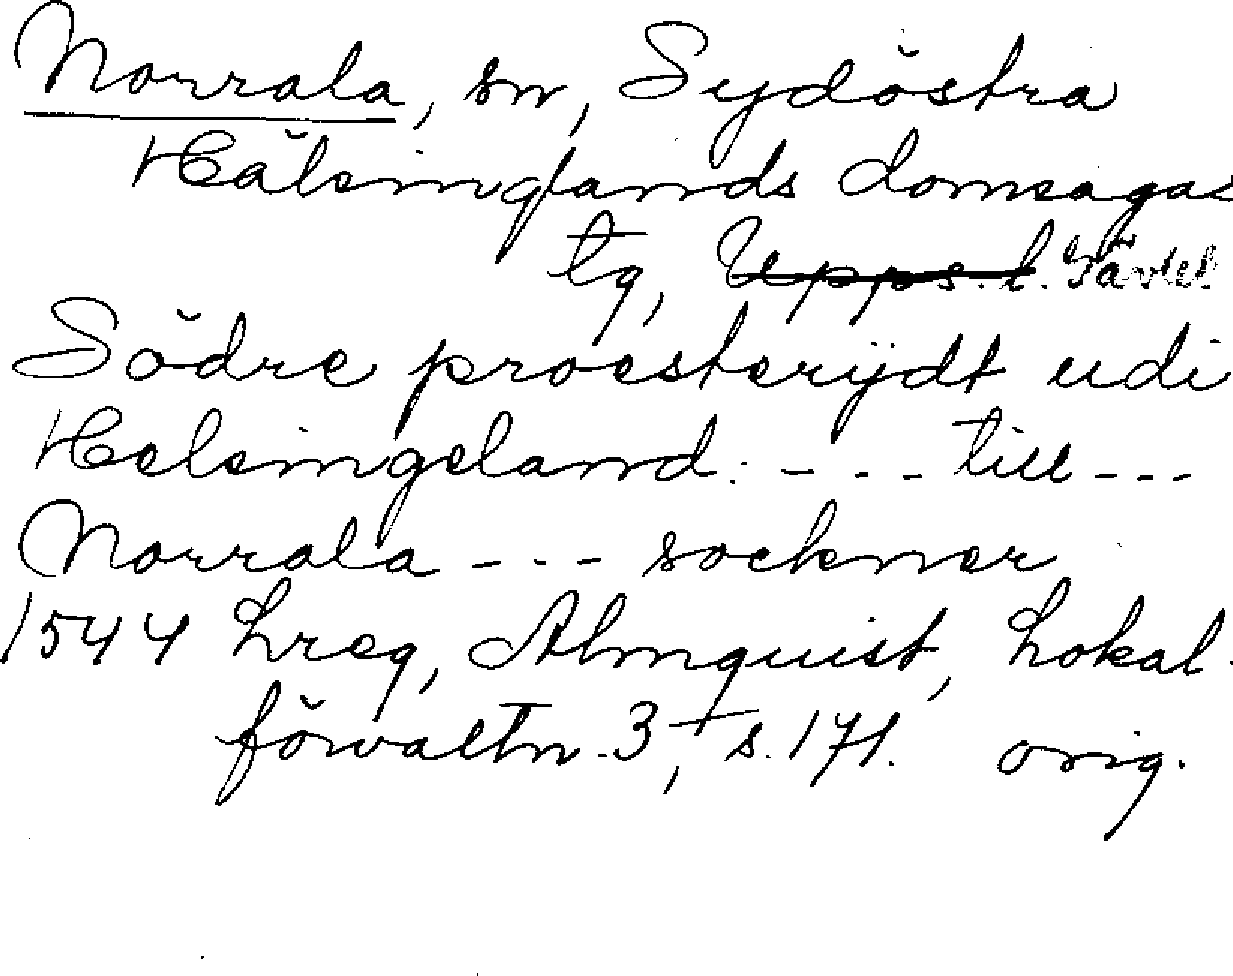 Norrala, sn, Sydöstra
Hälsinglands domsagas
tg, Upps. l. Gävleb
Södre proesterijdt udi
Helsingeland: - - - till - - -
Norrala - - - sockner
1544 Lreg, Almquist, Lokal-
förvaltn. 3, s. 171. orig.